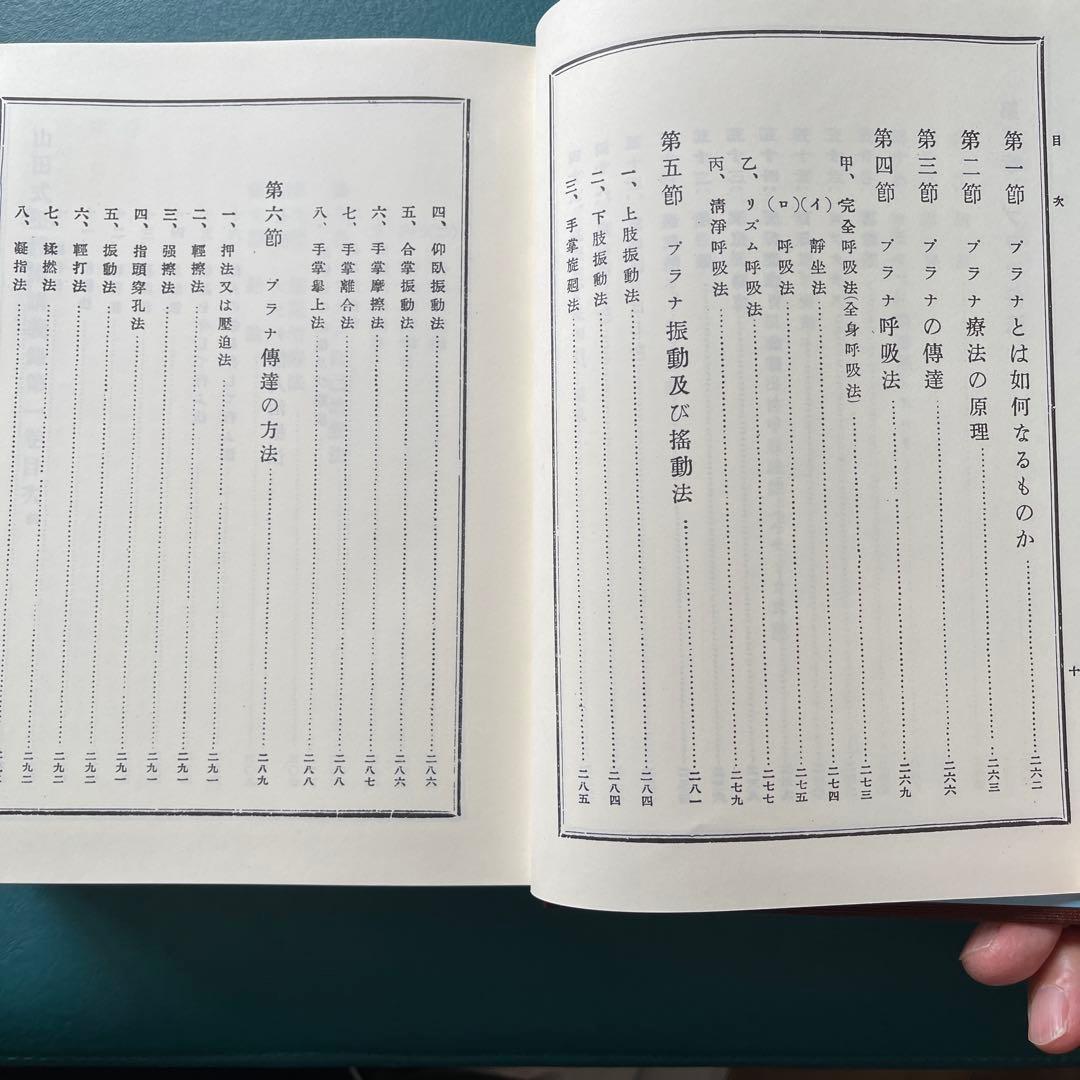 目次
十
第一節 プラナとは如何なるものか……二六二
第二節 プラナ療法の原理……二六三
第三節 プラナの傳達……二六六
第四節 プラナ呼吸法……二六九
甲、完全呼吸法(全身呼吸法)……二七三
(イ) 靜坐法……二七四
(ロ) 呼吸法……二七五
乙、リズム呼吸法……二七七
丙、淸淨呼吸法……二七九
第五節 プラナ振動及び搖動法……二八一
一、上肢振動法……二八四
二、下肢振動法……二八四
三、手掌旋廻法……二八五
四、仰臥振動法……二八六
五、合掌振動法……二八六
六、手掌摩擦法……二八七
七、手掌離合法……二八八
八、手掌擧上法……二八八
第六節 プラナ傳達の方法……二八九
一、押法又は壓迫法……二九一
二、輕擦法……二九一
三、强擦法……二九一
四、指頭穿孔法……二九一
五、振動法……二九一
六、輕打法……二九二
七、揉撚法……二九二
八、凝指法……二九二